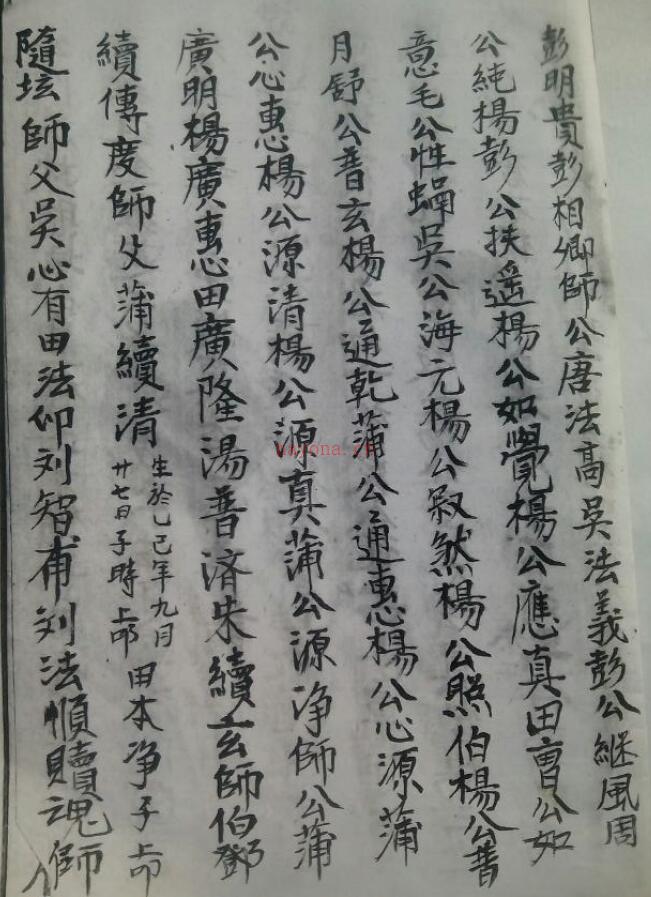 彭明貴彭相卿師公唐法高吳法義彭公継風周
公純楊彭公扶遥楊公如覺楊公應真田曹公如
意毛公性蝸吳公海元楊公寂然楊公照伯楊公普
月舒公普玄楊公通乾蒲公通惠楊公心源蒲
公心惠楊公源清楊公源真蒲公源净師公蒲
廣明楊廣惠田廣隆湯普済朱續玄師伯鄧
續傳度師父蒲續清生於乙巳年九月廿七日子時上命田本净子命
隨坛師父吳心有田法仰刘智甫刘法順贖魂師